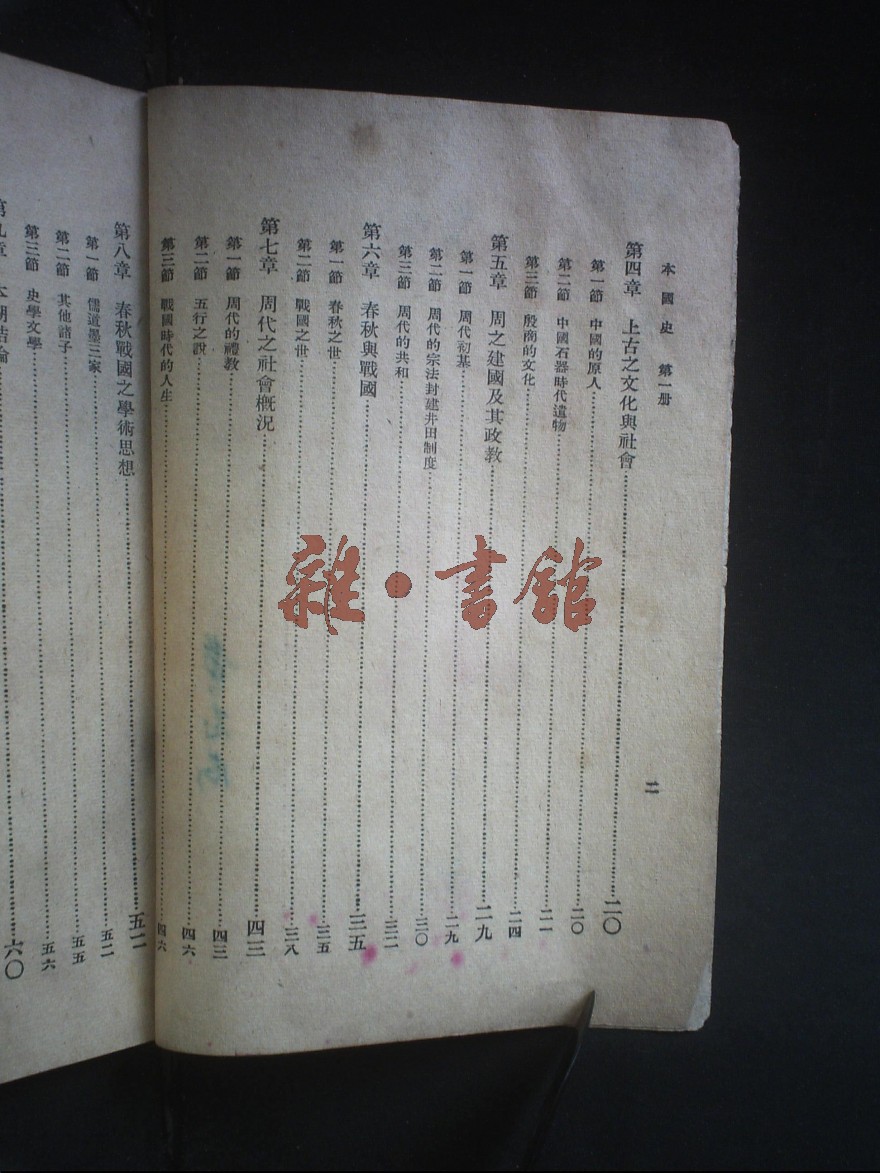 本國史 第一册
二
第四章 上古之文化與社會……二〇
第一節 中國的原人……二〇
第二節 中國石器時代遺物……二一
第三節 殷商的文化……二四
第五章 周之建國及其政教……二九
第一節 周代初基……二九
第二節 周代的宗法封建井田制度……三〇
第三節 周代的共和……三二
第六章 春秋與戰國……三五
第一節 春秋之世……三五
第二節 戰國之世……三八
第七章 周代之社會概況……四三
第一節 周代的禮教……四三
第二節 五行之說……四六
第三節 戰國時代的人生……四六
第八章 春秋戰國之學術思想……五二
第一節 儒道墨三家……五二
第二節 其他諸子……五五
第三節 史學文學……五六
第九章 本期結論……六〇
雜·書館